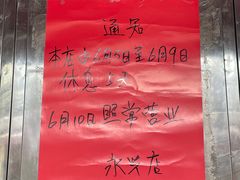 通知
本店由6月5日至6月9日
休息5天
6月10日照常营业
永兴店